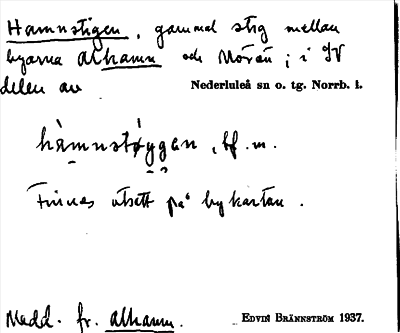 Hamnstigen, gammal stig mellan
byarna Alhamn och Morån; i SV
delen av Nederluleå sn o. tg. Norrb. l.
hàmnstı̷yggen, bf. m.
Finnes utsatt på bykartan.
Medd. fr. Alhamn. EDVIN BRÄNNSTRÖM 1937.